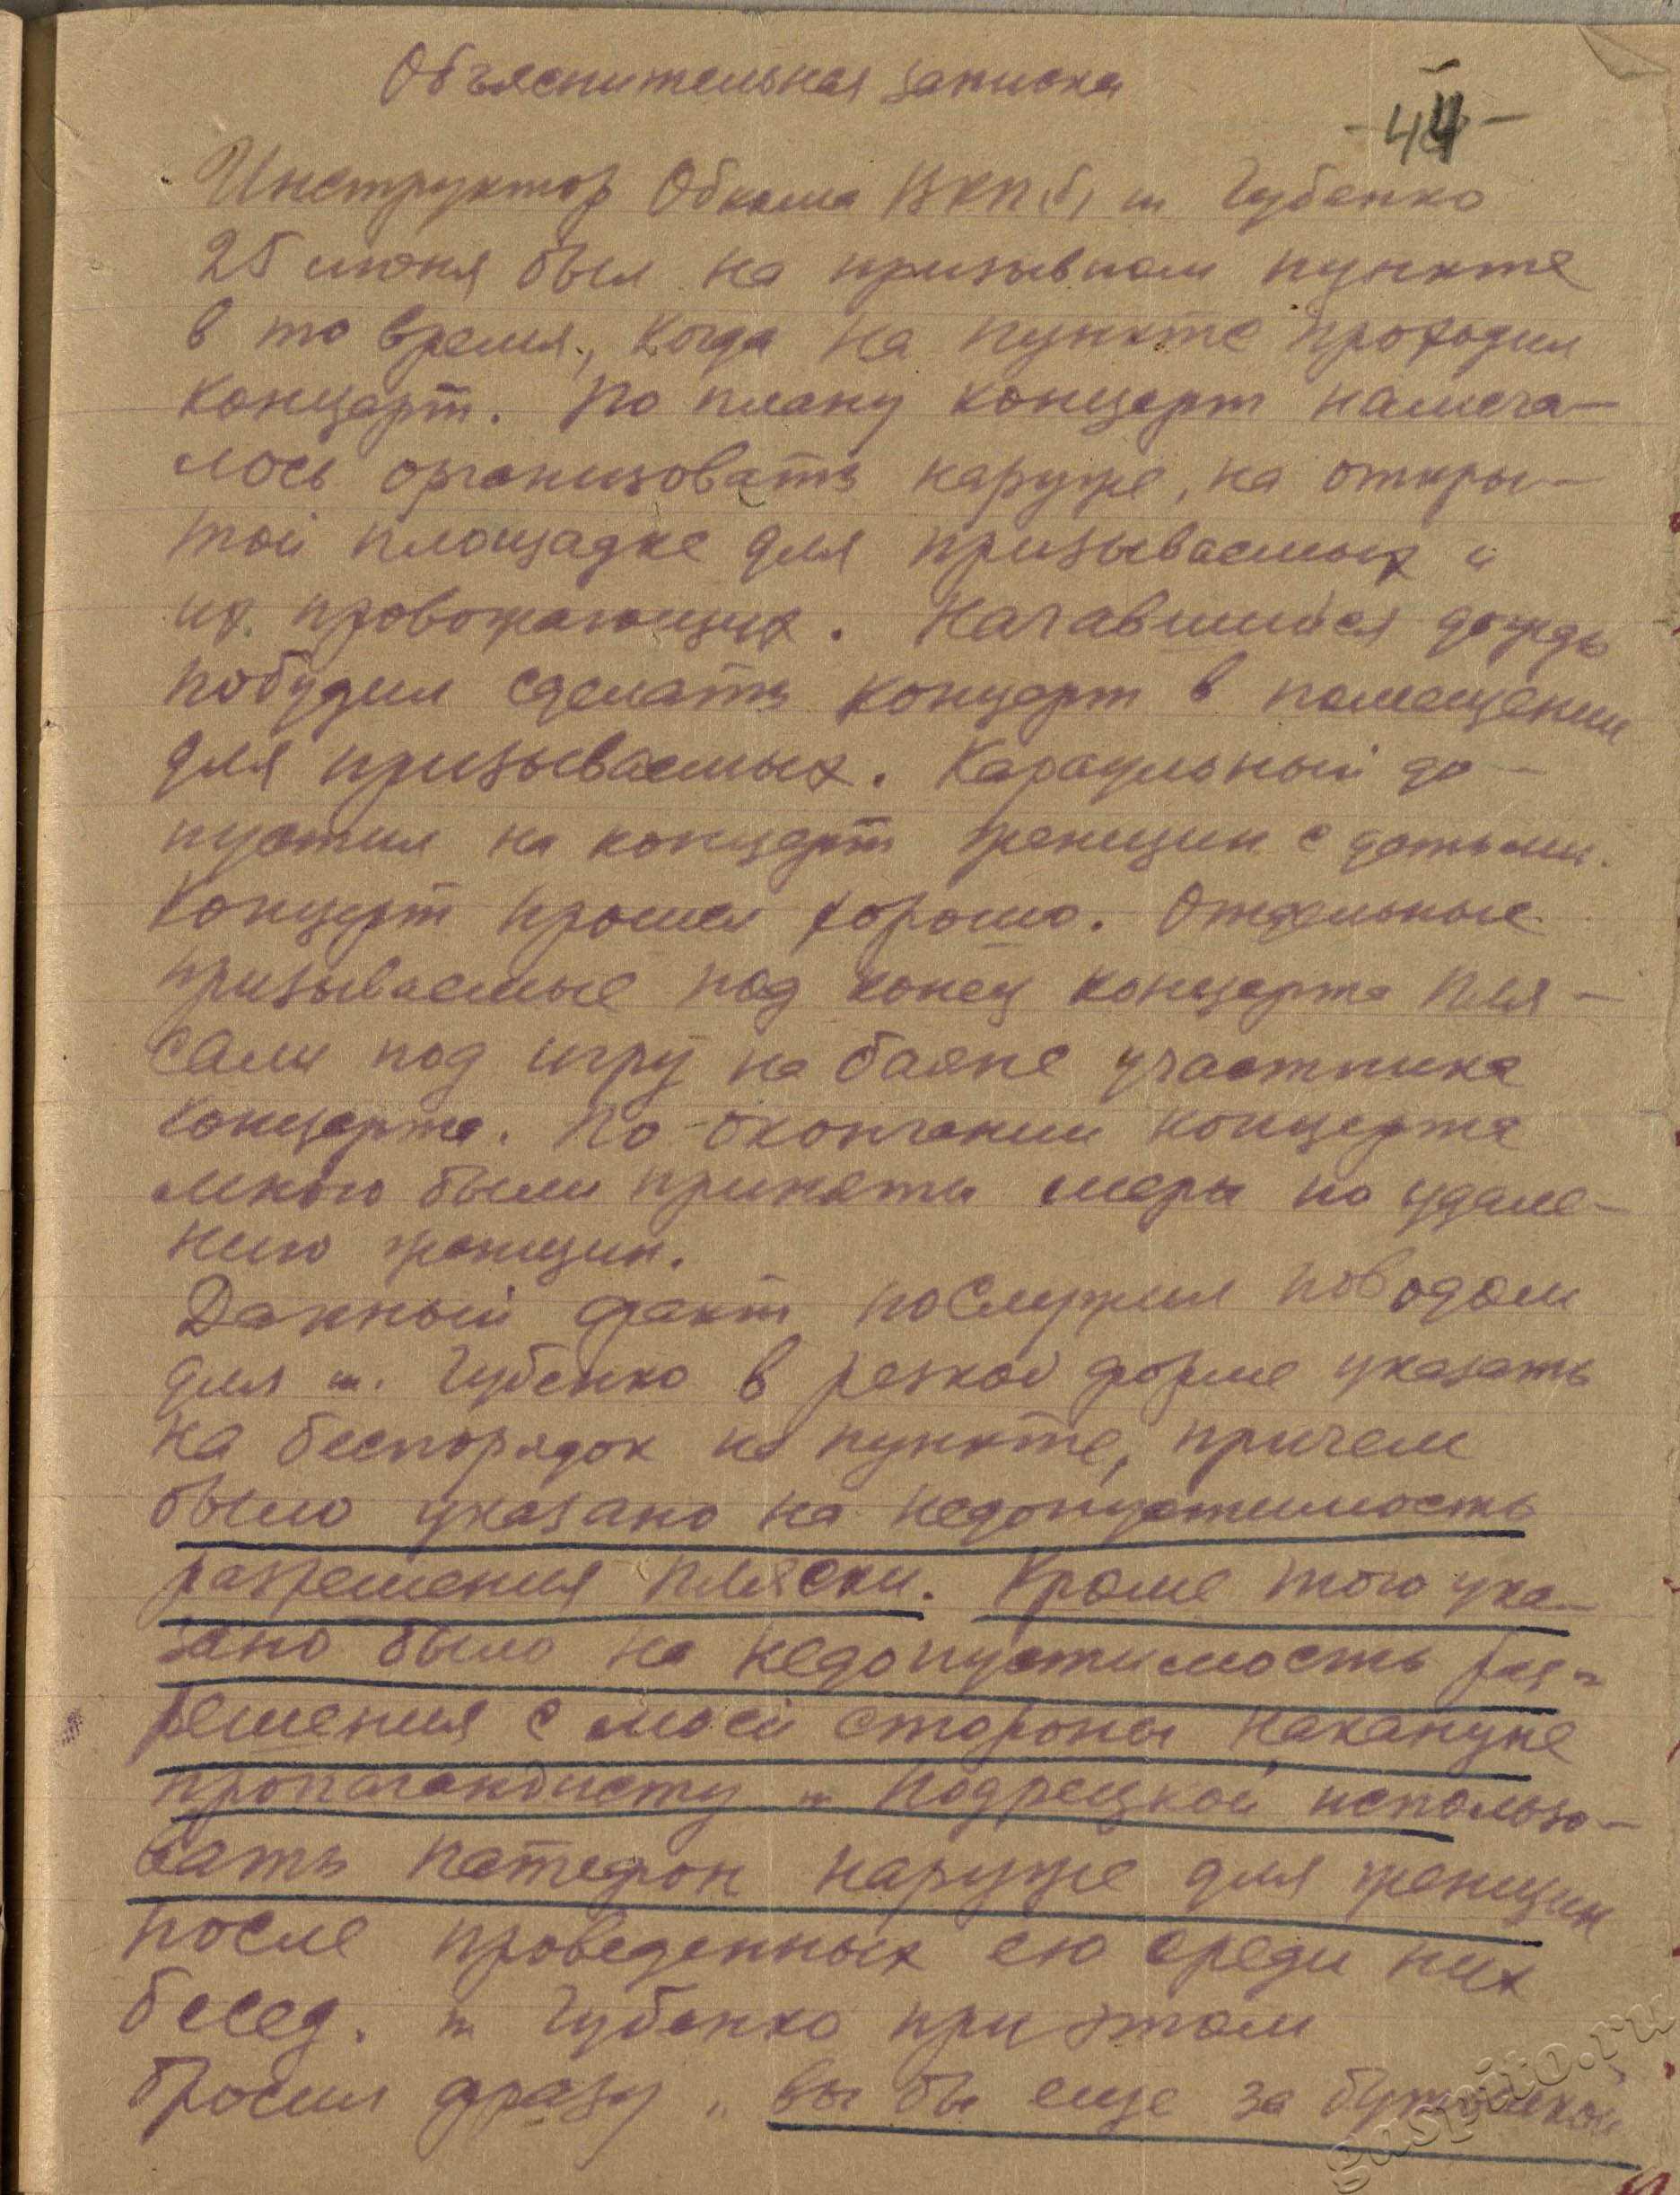 Объяснительная записка
- 44 -
Инструктор Обкома ВКП(б) т Губенко
25 июня был на призывном пункте
в то время, когда на пункте проходил
концерт. По плану концерт намеча-
лось организовать наруже, на откры-
той площадке для призываемых и
их провожающих. Начавшийся дождь
побудил сделать концерт в помещении
для призываемых. Караульный до-
пустил на концерт женщин с детьми.
Концерт прошел хорошо. Отдельные
призываемые под конец концерта пля-
сали под игру на баяне участника
концерта. По окончании концерта
мною были приняты меры по удале-
нию женщин.
Данный факт послужил поводом
для т. Губенко в резкой форме указать
на беспорядок на пункте, причем
было указано на недопустимость
разрешения пляски. Кроме того ука-
зано было на недопустимость раз-
решения с моей стороны накануне
пропагандисту т Подрецкой использо-
вать патефон наруже для женщин
после проведенных ею среди них
бесед. т Губенко при этом
бросил фразу „вы бы еще за бутылкой
gaspito.ru